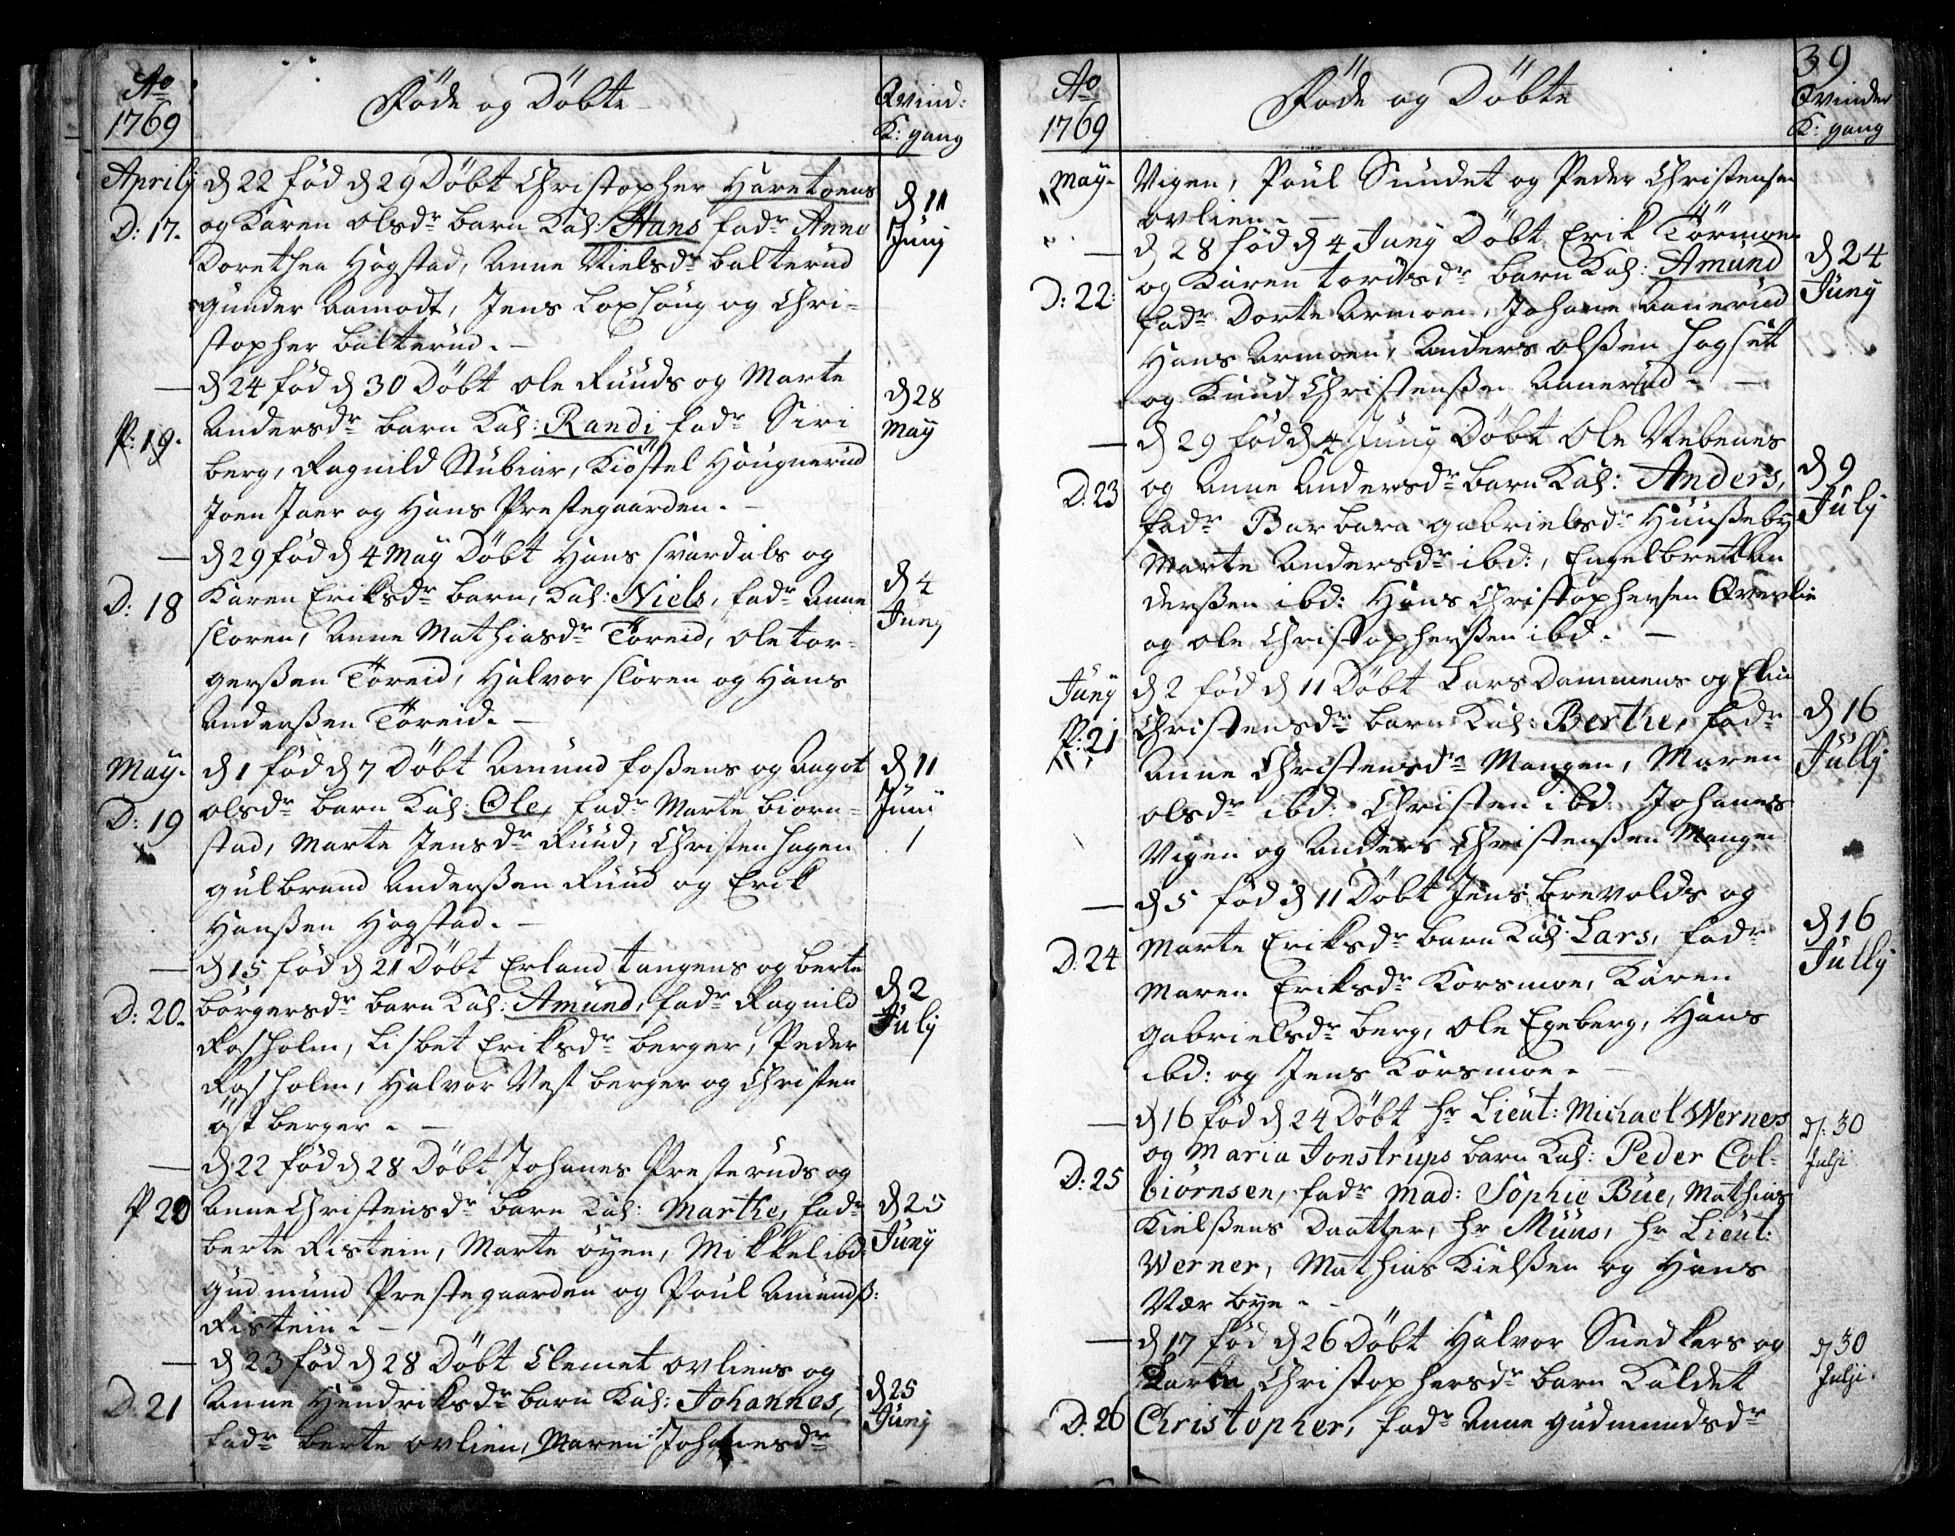 Ao
1769
Föde og Döbte
Qvind:
K: gang
Aprilj
D: 17.
d 22 föd d 29 Döbt Christopher Haretoens
og Karen olsdr barn Kal: Hans fadr Anne
Dorethea Hogstad, Anne Nielsdr balterud
gunder Aamodt, Jens
og Chri-
stopher balterud. -
d 11
Junj
d 24 föd d 30 Döbt ole Ruuds og Marte
Andersdr barn Kal: Randi fadr Siri
berg, Ragnild Stubiar, Kiöstel Hougnerud
Joen Jaer og Hans Prestegaarden. -
P: 19.
d 28
May
d 29 föd d 4 May Döbt Hans svardals og
Karen Eriksdr barn, Kal: Niels, fadr Anne
sloren, Anne Mathiasdr Töreid, ole tor-
gerßen Töreid, Halvor sloren og Hans
Anderßen Töreid. -
D: 18
d 4
Junj
May.
D: 19
d 1 föd d 7 Döbt Amund foßens og Aagot
olsdr barn Kal: Ole, fadr Marte biorn-
stad, Marte Jensdr Ruud, Christen hagen
gulbrand Anderßen Ruud og Erik
Hanßen Hogstad. -
d 11
Junj
d 15 föd d 21 Döbt Erland tangens og berte
börgersdr barn Kal: Amund, fadr Ragnild
Rasholm, Lisbet Eriksdr berger, Peder
Rasholm, Halvor Vest berger og Christen
öst berger. -
D: 20.
d 2
Julj
d 22 föd d 28 Döbt Johanes Presteruds og
Anne Christensdr barn Kal: Marthe, fadr
berte Ristein, Marte öyen, Mikkel ibd:
gudmund Prestegaarden og Poul Amundß:
Ristein. -
P 20
d 25
Junj
d 23 föd d 28 Döbt Clemet ovliens og
Anne Hendriksdr barn Kal: Johannes,
fadr berte ovlien, Maren Johanesdr
D: 21
d 25
Junj
39
Ao
1769
Föde og Döbte
Qvinder
K: gang
May.
Vigen, Poul Sundet og Peder Christensen
ovlien. -
d 28 föd d 4 Junj Döbt Erik Törmoen
og Karen tordsdr barn Kal: Amund
fadr Dorte Armoen, Johane Aanerud
Hans Armoen, Anders olßen hogset
og Knud Christenßen Aanerud -
D: 22:
d 24
Junj
d 29 föd d 4 Junj Döbt Ole Nebenes
og Anne Andersdr barn Kal: Anders,
fadr Barbara gabrielsdr Hunßeby
Marte Andersdr ibd:, Engelbret An
derßen ibd: Hans Christophersen Qverlie
og ole Christopherßen ibd. -
D: 23
d 9
Julj
Junj
P: 21
d 2 föd d 11 Döbt Lars Dammens og Elin
Christensdr barn Kal: Berthe, fadr
Anne Christensdr Mangen, Maren
olsdr ibd: Christen ibd: Johanes
Vigen og Anders Christenßen Mangen
d 16
Jullj
d 5 föd d 11 Döbt Jens brevolds og
Marte Eriksdr barn Kal: Lars, fadr
Maren Eriksdr Korsmoe, Karen
gabrielsdr berg, ole Egeberg, Hans
ibd: og Jens Korsmoe. -
D: 24
d 16
Jullj
d 16 föd d 24 Döbt hr Lieut: Michael Werners
og Maria Jonstrups barn Kal: Peder Col-
biörnsen, fadr Mad: Sophie Bue, Mathias
Kielßens Daatter, hr Muus, hr Lieut:
Werner, Mathias Kielßen og Hans
Vær bye. -
D: 25
d: 30
Julji
d 17 föd d 26 Döbt Halvor Snedkers og
Christophersdr barn Kaldet
Christopher, fadr Anne gudmundsdr
D: 26
d 30
Julji.